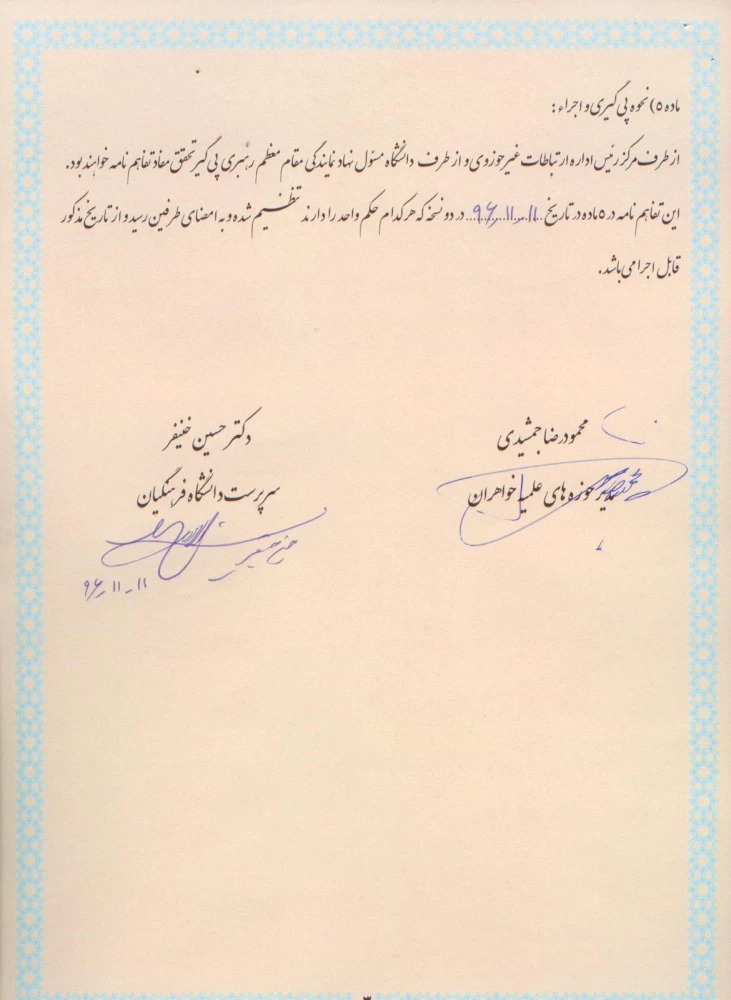 ماده ۵) نحوه پی گیری و اجراء :
از طرف مرکز رئیس اداره ارتباطات غیر حوزوی و از طرف دانشگاه مسئول نهاد نمایندگی مقام معظم رهبری پی گیر تحقق مفاد تفاهم نامه خواهند بود.
این تفاهم نامه در ۵ ماده در تاریخ ...۹۶٫۱۱٫۱۱... در دو نسخه که هر کدام حکم واحد را دارند تنظیم شده و به امضای طرفین رسید و از تاریخ مذکور
قابل اجرا می باشد.
محمود رضا جمشیدی
مدیر حوزه های علمیه خواهران
دکتر حسین خنیفر
سرپرست دانشگاه فرهنگیان
۹۶٫۱۱-۱۱
۳